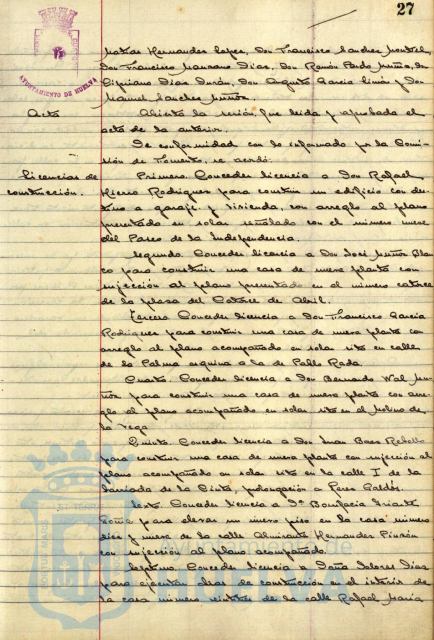 27
AYUNTAMIENTO DE HUELVA
Matías Hernandez Lopez, Don Francisco Sanchez Montiel,
Don Francisco Manzano Dias, Don Ramón Pardo Muñiz, Don
Cipriano Dias Durán, Don Augusto Garcia Simón y Don
Manuel Sanchez Muñoz.
Acta
Abierta la sesión, fue leida y aprobada el
acta de la anterior.
De conformidad con lo informado por la Comi-
sión de Fomento, se acordó:
Licencias de
construcción.
Primero. Conceder licencia a Don Rafael
Hierro Rodriguez para construir un edificio con des-
tino a garaje y vivienda, con arreglo al plano
presentado en solar señalado con el número nueve
del Paseo de la Independencia.
Segundo. Conceder licencia a Don José Muñoz Blan-
co para construir una casa de nueva planta con
sujección al plano presentado en el número catorce
de la plaza del Catorce de Abril.
Tercero. Conceder licencia a Don Francisco Garcia
Rodriguez para construir una casa de nueva planta con
arreglo al plano acompañado en solar sito en calle
de la Palma esquina a la de Pablo Rada.
Cuarto. Conceder licencia a Don Bernardo Wal Mu-
ñoz para construir una casa de nueva planta con arre-
glo al plano acompañado en solar sito en el Molino de
la Vega.
Quinto. Conceder licencia a Don Juan Baez Rebollo
para construir una casa de nueva planta con sujección al
plano acompañado en solar sito en la calle I de la
barriada de la Cinta, prolongación a Perez Galdós.
Sexto. Conceder licencia a Dª Bonifacia Iriarte
para elevar un nuevo piso en la casa número
diez y nueve de la calle Almirante Hernandez Pinzón
con sujección al plano acompañado.
Septimo. Conceder licencia a Doña Dolores Dias
para ejecutar obras de construcción en el interior de
la casa número veintres de la calle Rafael Maria